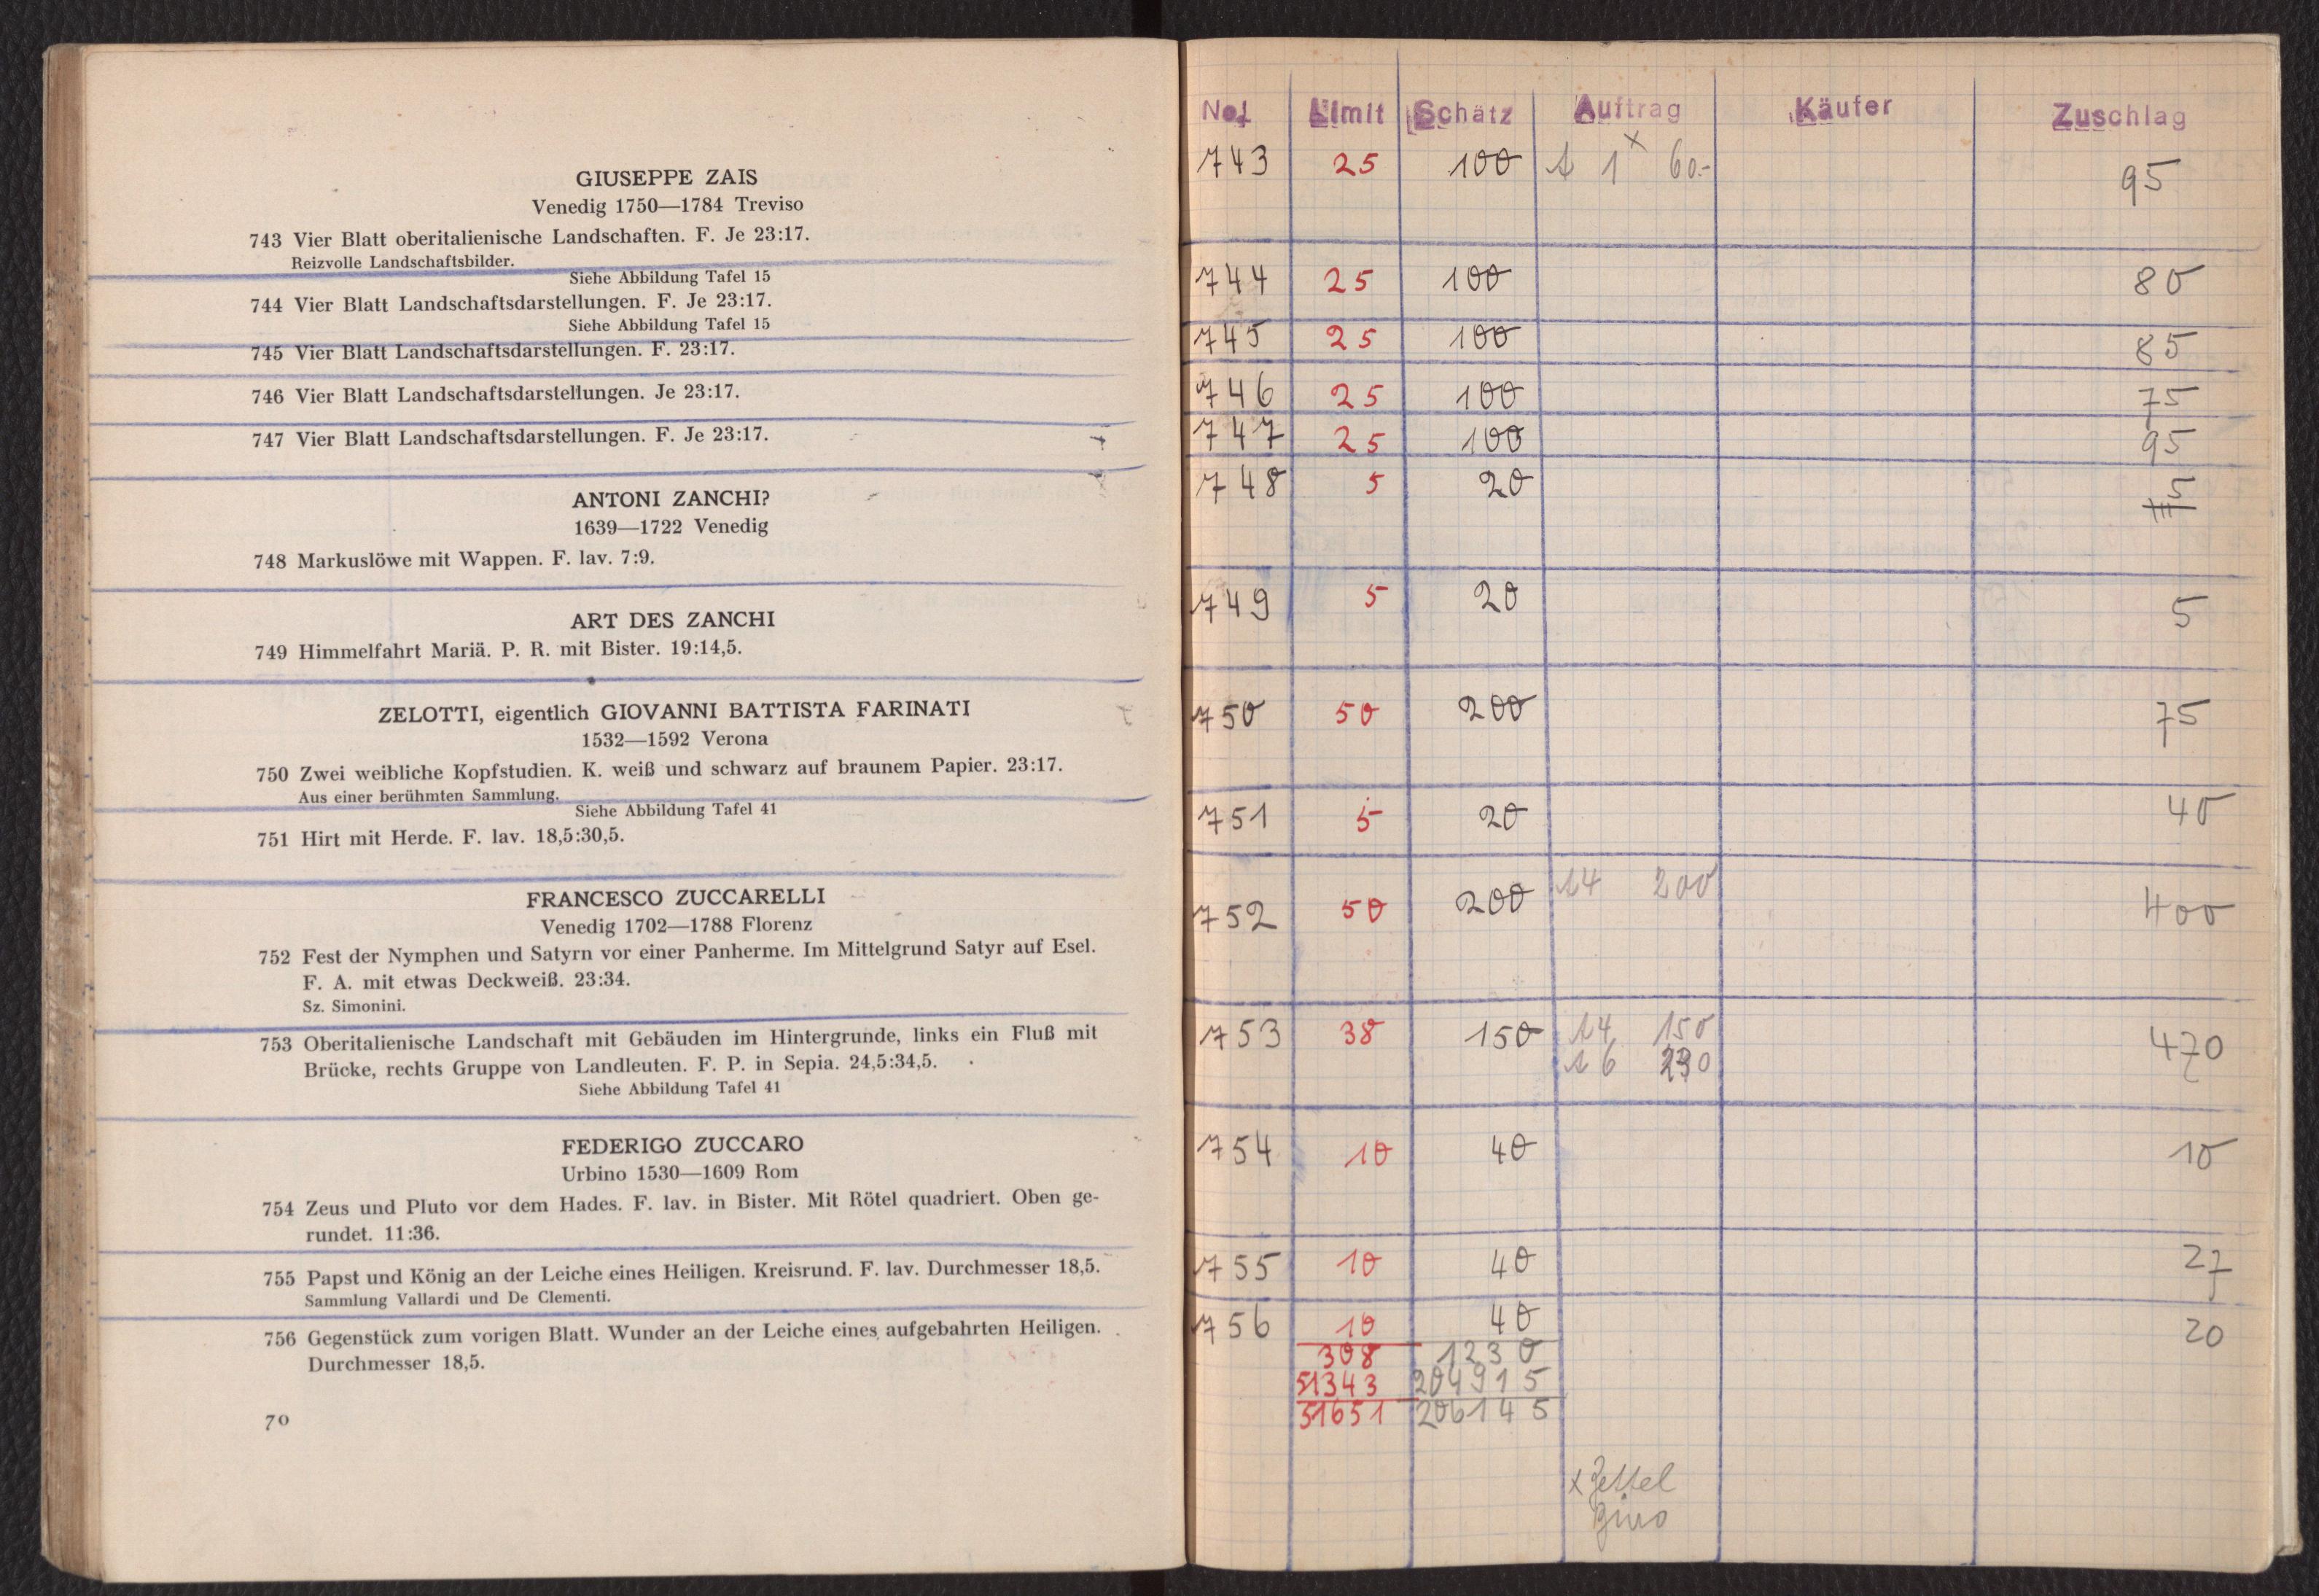 GIUSEPPE ZAIS
Venedig 1750—1784 Treviso
743 Vier Blatt oberitalienische Landschaften. F. Je 23:17.
Reizvolle Landschaftsbilder.
Siehe Abbildung Tafel 15
744 Vier Blatt Landschaftsdarstellungen. F. Je 23:17.
Siehe Abbildung Tafel 15
745 Vier Blatt Landschaftsdarstellungen. F. 23:17.
746 Vier Blatt Landschaftsdarstellungen. Je 23:17.
747 Vier Blatt Landschaftsdarstellungen. F. Je 23:17.
ANTONI ZANCHI?
1639—1722 Venedig
748 Markuslöwe mit Wappen. F. lav. 7:9.
ART DES ZANCHI
749 Himmelfahrt Mariä. P. R. mit Bister. 19:14,5.
ZELOTTI, eigentlich GIOVANNI BATTISTA FARINATI
1532—1592 Verona
750 Zwei weibliche Kopfstudien. K. weiß und schwarz auf braunem Papier. 23:17.
Aus einer berühmten Sammlung.
Siehe Abbildung Tafel 41
751 Hirt mit Herde. F. lav. 18,5:30,5.
FRANCESCO ZUCCARELLI
Venedig 1702—1788 Florenz
752 Fest der Nymphen und Satyrn vor einer Panherme. Im Mittelgrund Satyr auf Esel.
F. A. mit etwas Deckweiß. 23:34.
Sz. Simonini.
753 Oberitalienische Landschaft mit Gebäuden im Hintergrunde, links ein Fluß mit
Brücke, rechts Gruppe von Landleuten. F. P. in Sepia. 24,5:34,5.
Siehe Abbildung Tafel 41
FEDERIGO ZUCCARO
Urbino 1530—1609 Rom
754 Zeus und Pluto vor dem Hades. F. lav. in Bister. Mit Rötel quadriert. Oben ge-
rundet. 11:36.
755 Papst und König an der Leiche eines Heiligen. Kreisrund. F. lav. Durchmesser 18,5.
Sammlung Vallardi und De Clementi.
756 Gegenstück zum vorigen Blatt. Wunder an der Leiche eines aufgebahrten Heiligen.
Durchmesser 18,5.
70
No. Limit Schätz Auftrag Käufer Zuschlag
743 25 100 1 x 60.- 95
744 25 100 80
745 25 100 85
746 25 100 75
747 25 100 95
748 5 20
749 5 20 5
750 50 200 75
751 5 20 40
752 50 200 14 200 400
753 38 150 14 150 470
16
754 10 40 10
755 10 40 27
756 10 40 20
308 1230
51343 204915
51651 206145
x Zettel